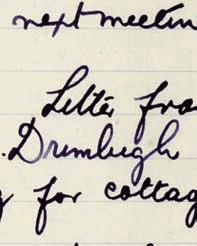 next meetin
Letter fro
. Drumlugh
g for cottag